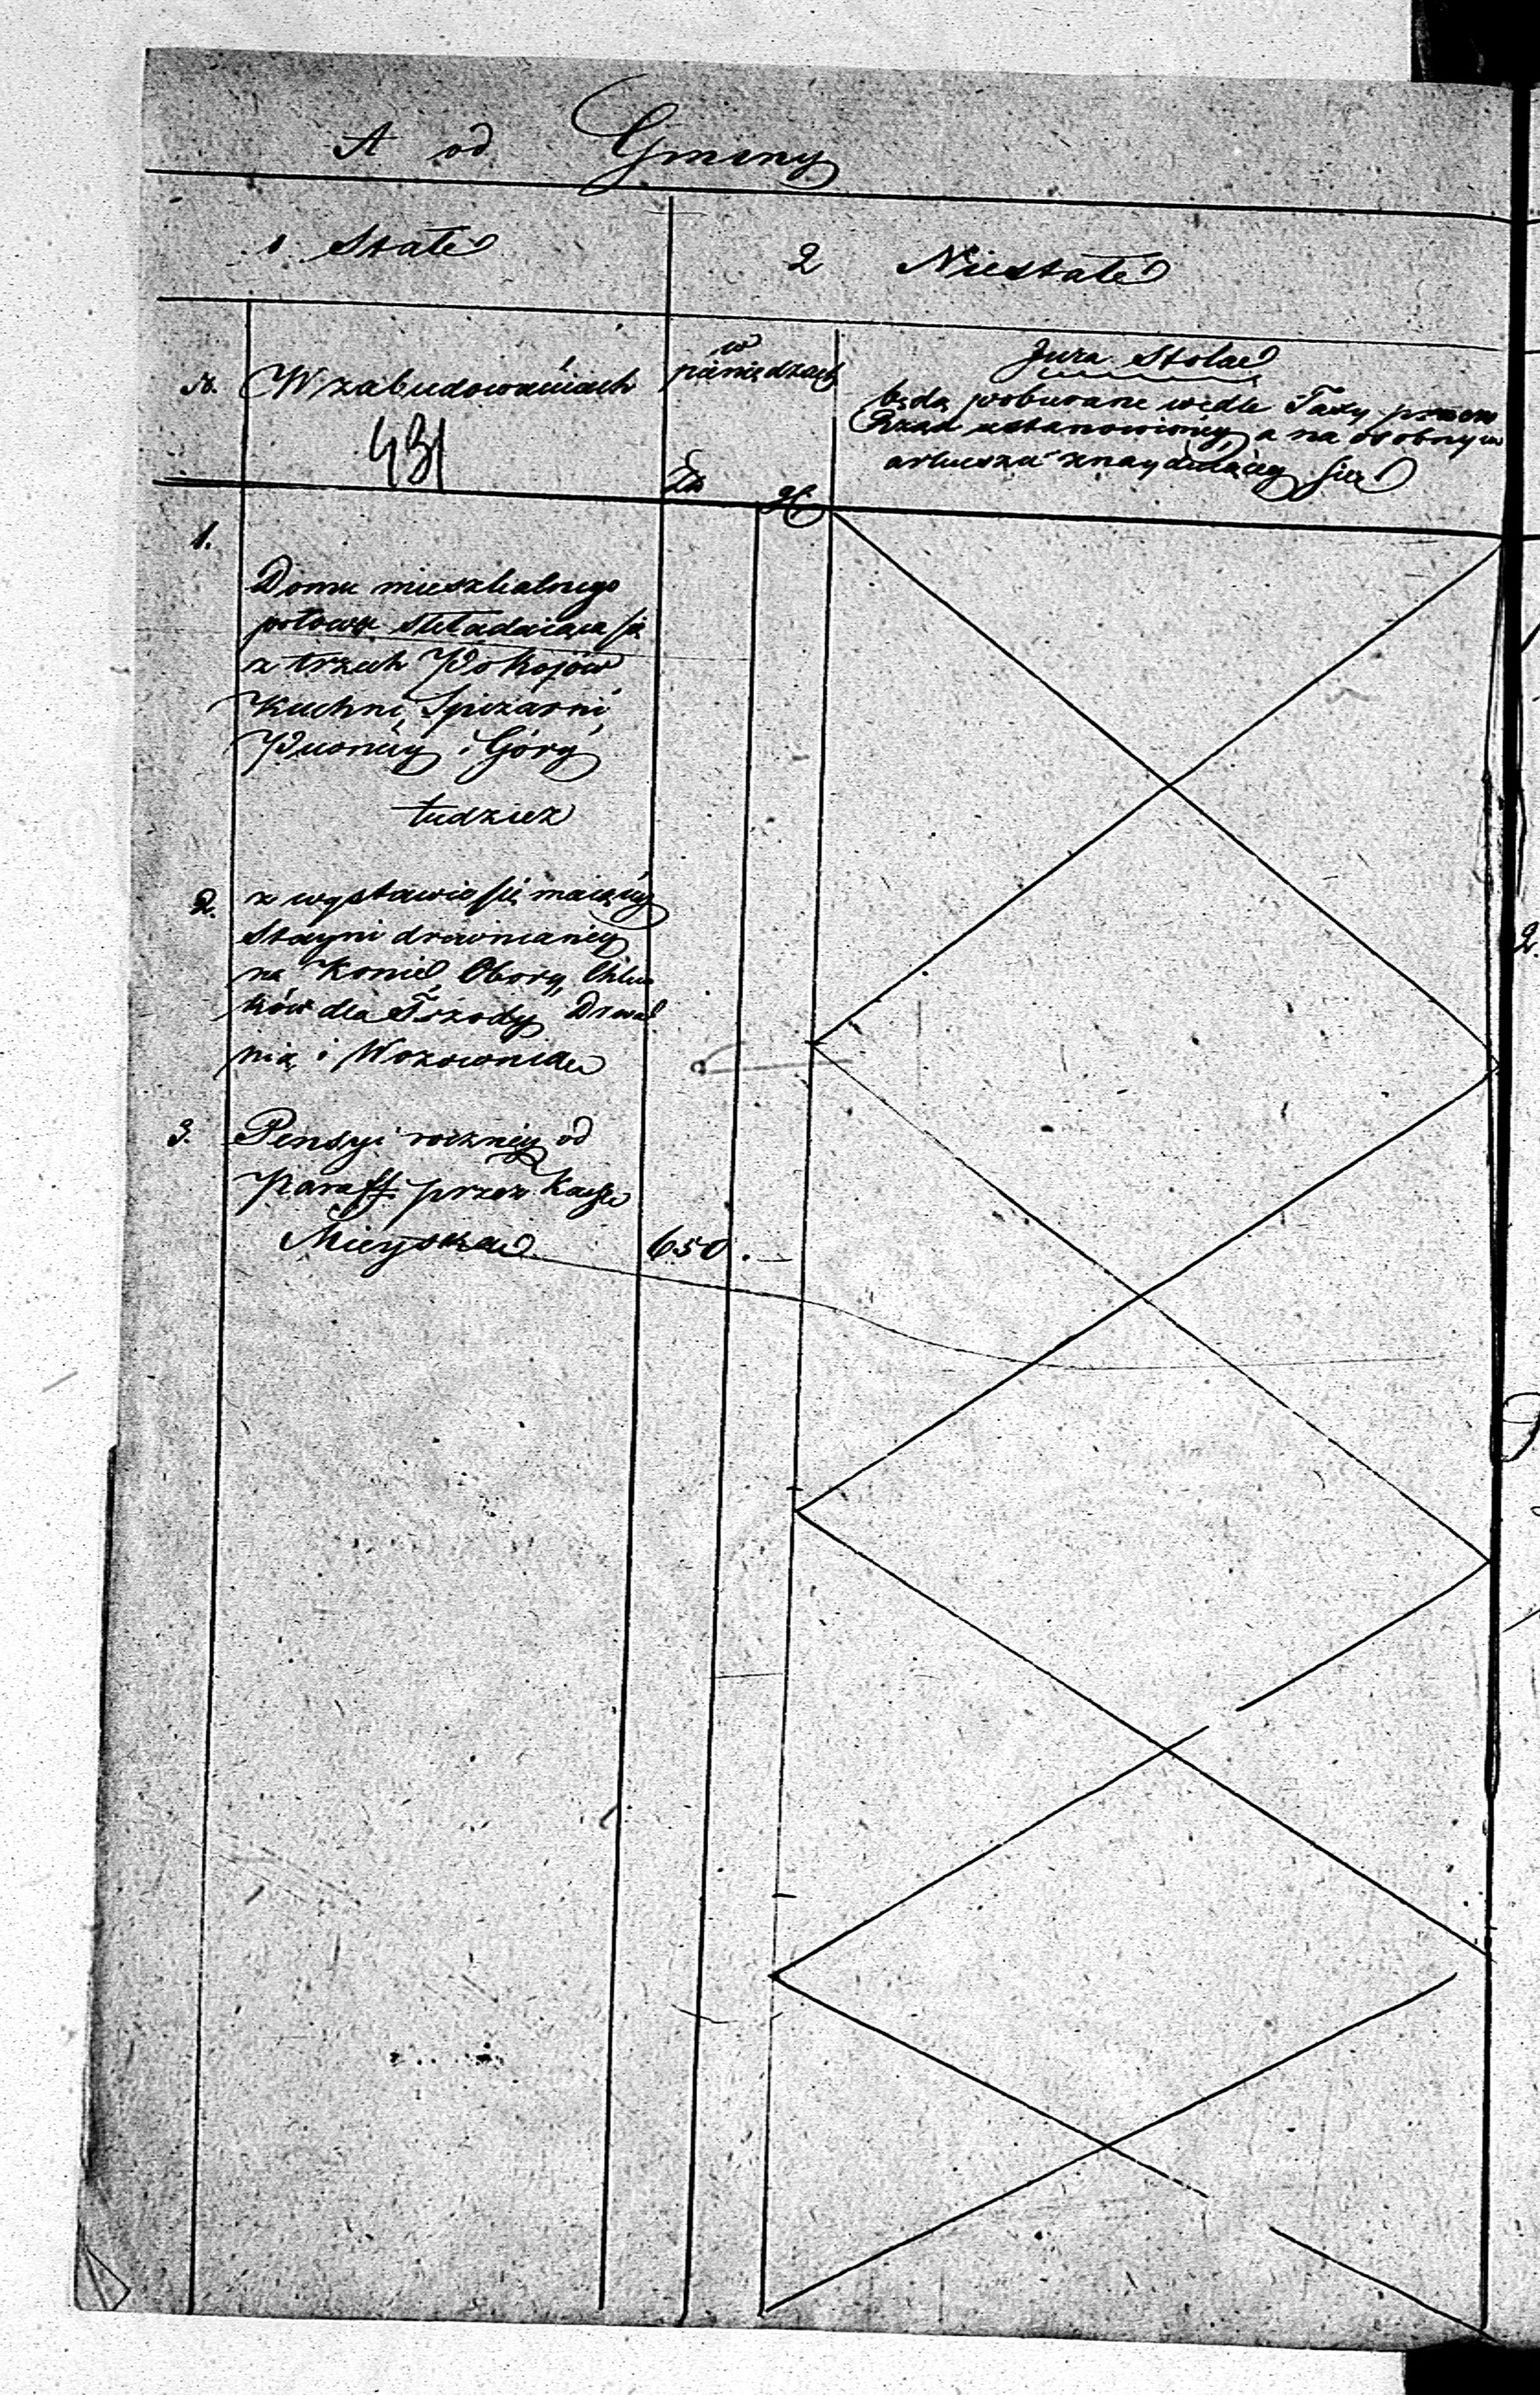 A od Gminy
1. Stałe
2 Niestałe
N. W zabudowaniach
431
w
pieniędzach
Zł gr
Jura Stolae
będą pobierane wedle Taxy przez
Rząd ustanowioney, a na osobnym
arkuszu znayduiącey się
1.
Domu mieszkalnego
połowę składaiąca się
z trzech Pokojów
Kuchni, Spiżarni,
Piwnicy i Góry
tudzież
2. z wystawić się maiącey
Stayni drewnianey
na Konie, Obory, Chlew
ków dla Trzody Drwal
nią i Wozownia
3. Pensyi roczney od
Paraff. przez Kassę
Mieyską 650. —
2.